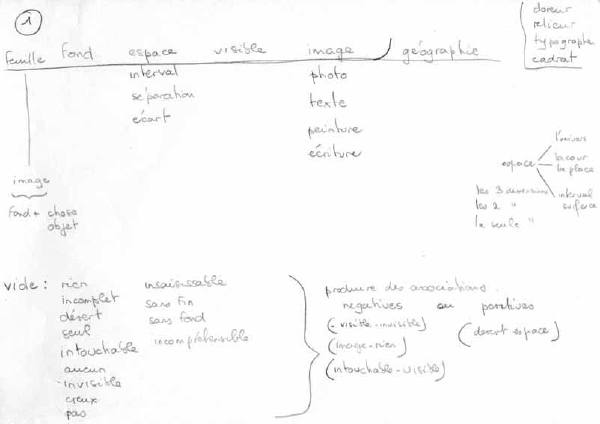 1
doreur
relieur
typographe
cadrat
feuille fond espace visible image géographie
interval
séparation
écart
photo
texte
peinture
écriture
image
fond + chose
objet
espace
l'univers
la cour
la place
interval
surface
les 3 dimensions
les 2 "
la seule "
vide : rien
incomplet
désert
seul
intouchable
aucun
invisible
creux
pas
insaisissable
sans fin
sans fond
incompréhensible
produire des associations
negatives ou positives
(-visible-invisible)
(image-rien)
(intouchable-visible)
(desert espace)